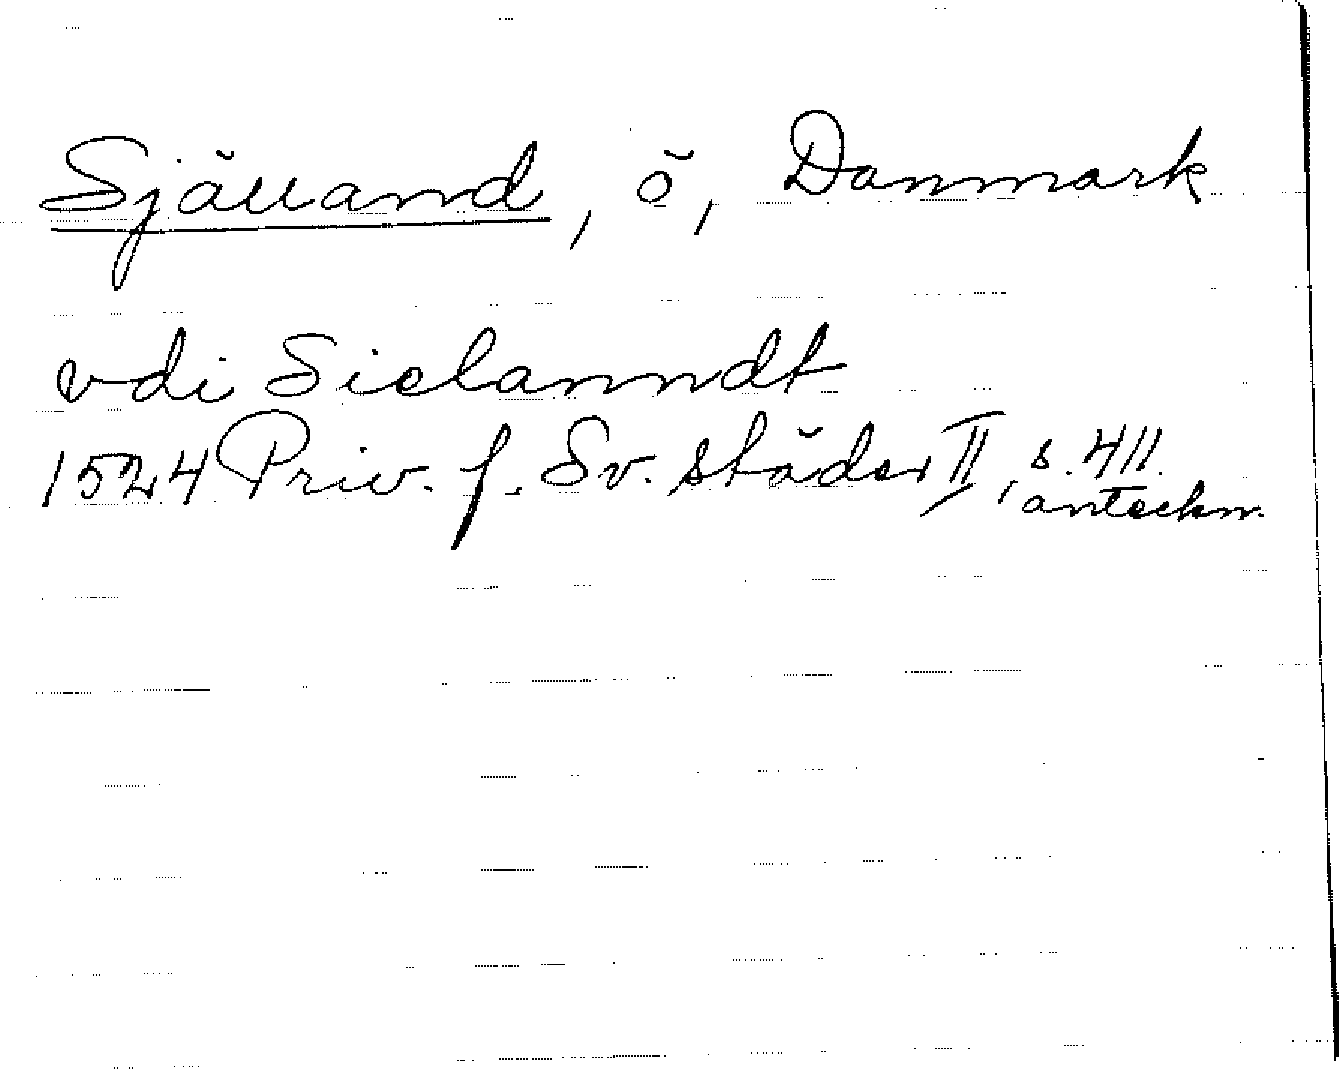 Själland, ö, Danmark
vdi Sielanndt
1524 Priv. f. Sv. städer II, s. 411.
anteckn.